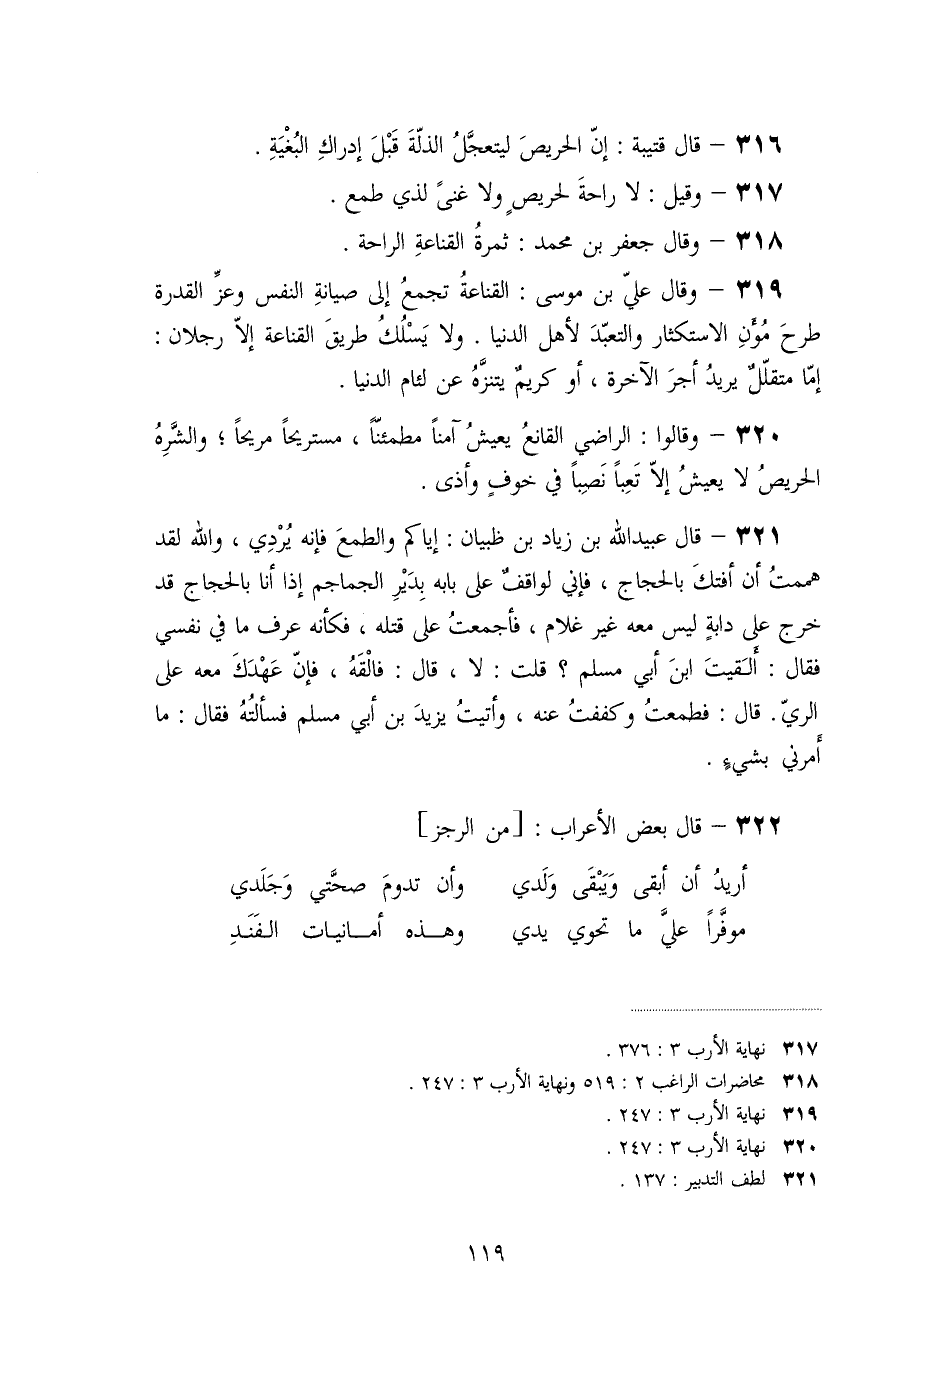 ٣١٦ – قال قتيبة : إنّ الحريصَ ليتعجَّلُ الذلّةَ قَبْلَ إدراكِ البُغْيَةِ .
٣١٧ – وقيل : لا راحةَ لحريصٍ ولا غنىً لذي طمع .
٣١٨ – وقال جعفر بن محمد : ثمرةُ القناعةِ الراحة .
٣١٩ – وقال عليّ بن موسى : القناعةُ تجمعُ إلى صيانةِ النفس وعزِّ القدرة
طرحَ مُؤَنِ الاستكثار والتعبّدَ لأهل الدنيا . ولا يَسْلُكُ طريقَ القناعة إلاّ رجلان :
إمّا متقلّلٌ يريدُ أجرَ الآخرة ، أو كريمٌ يتنزَّهُ عن لئام الدنيا .
٣٢٠ – وقالوا : الراضي القانعُ يعيشُ آمناً مطمئنّاً ، مستريحاً مريحاً ؛ والشَّرِهُ
الحريصُ لا يعيشُ إلاّ تَعِباً نَصِباً في خوفٍ وأذى .
٣٢١ – قال عبيدالله بن زياد بن ظبيان : إياكم والطمعَ فإنه يُرْدِي ، والله لقد
هممتُ أن أفتكَ بالحجاج ، فإني لواقفٌ على بابه بِدَيْرِ الجماجم إذا أنا بالحجاج قد
خرج على دابةٍ ليس معه غير غلام ، فأجمعتُ على قتله ، فكأنه عرف ما في نفسي
فقال : أَلقيتَ ابنَ أبي مسلم ؟ قلت : لا ، قال : فالْقَهُ ، فإنّ عَهْدَكَ معه على
الريّ. قال : فطمعتُ وكففتُ عنه ، وأتيتُ يزيدَ بن أبي مسلم فسألتُهُ فقال : ما
أَمرني بشيءٍ .
٣٢٢ – قال بعض الأعراب : [من الرجز]
أريدُ أن أبقى وَيَبْقَى وَلَدي وأن تدومَ صحَّتي وَجَلَدي
موفَّراً عليَّ ما تحوي يدي وهـــذه أمـــانيـات الـفَنَـدِ
٣١٧ نهاية الأرب ٣ : ٣٧٦ .
٣١٨ محاضرات الراغب ٢ : ٥١٩ ونهاية الأرب ٣ : ٢٤٧ .
٣١٩ نهاية الأرب ٣ : ٢٤٧ .
٣٢٠ نهاية الأرب ٣ : ٢٤٧ .
٣٢١ لطف التدبير : ١٣٧ .
١١٩